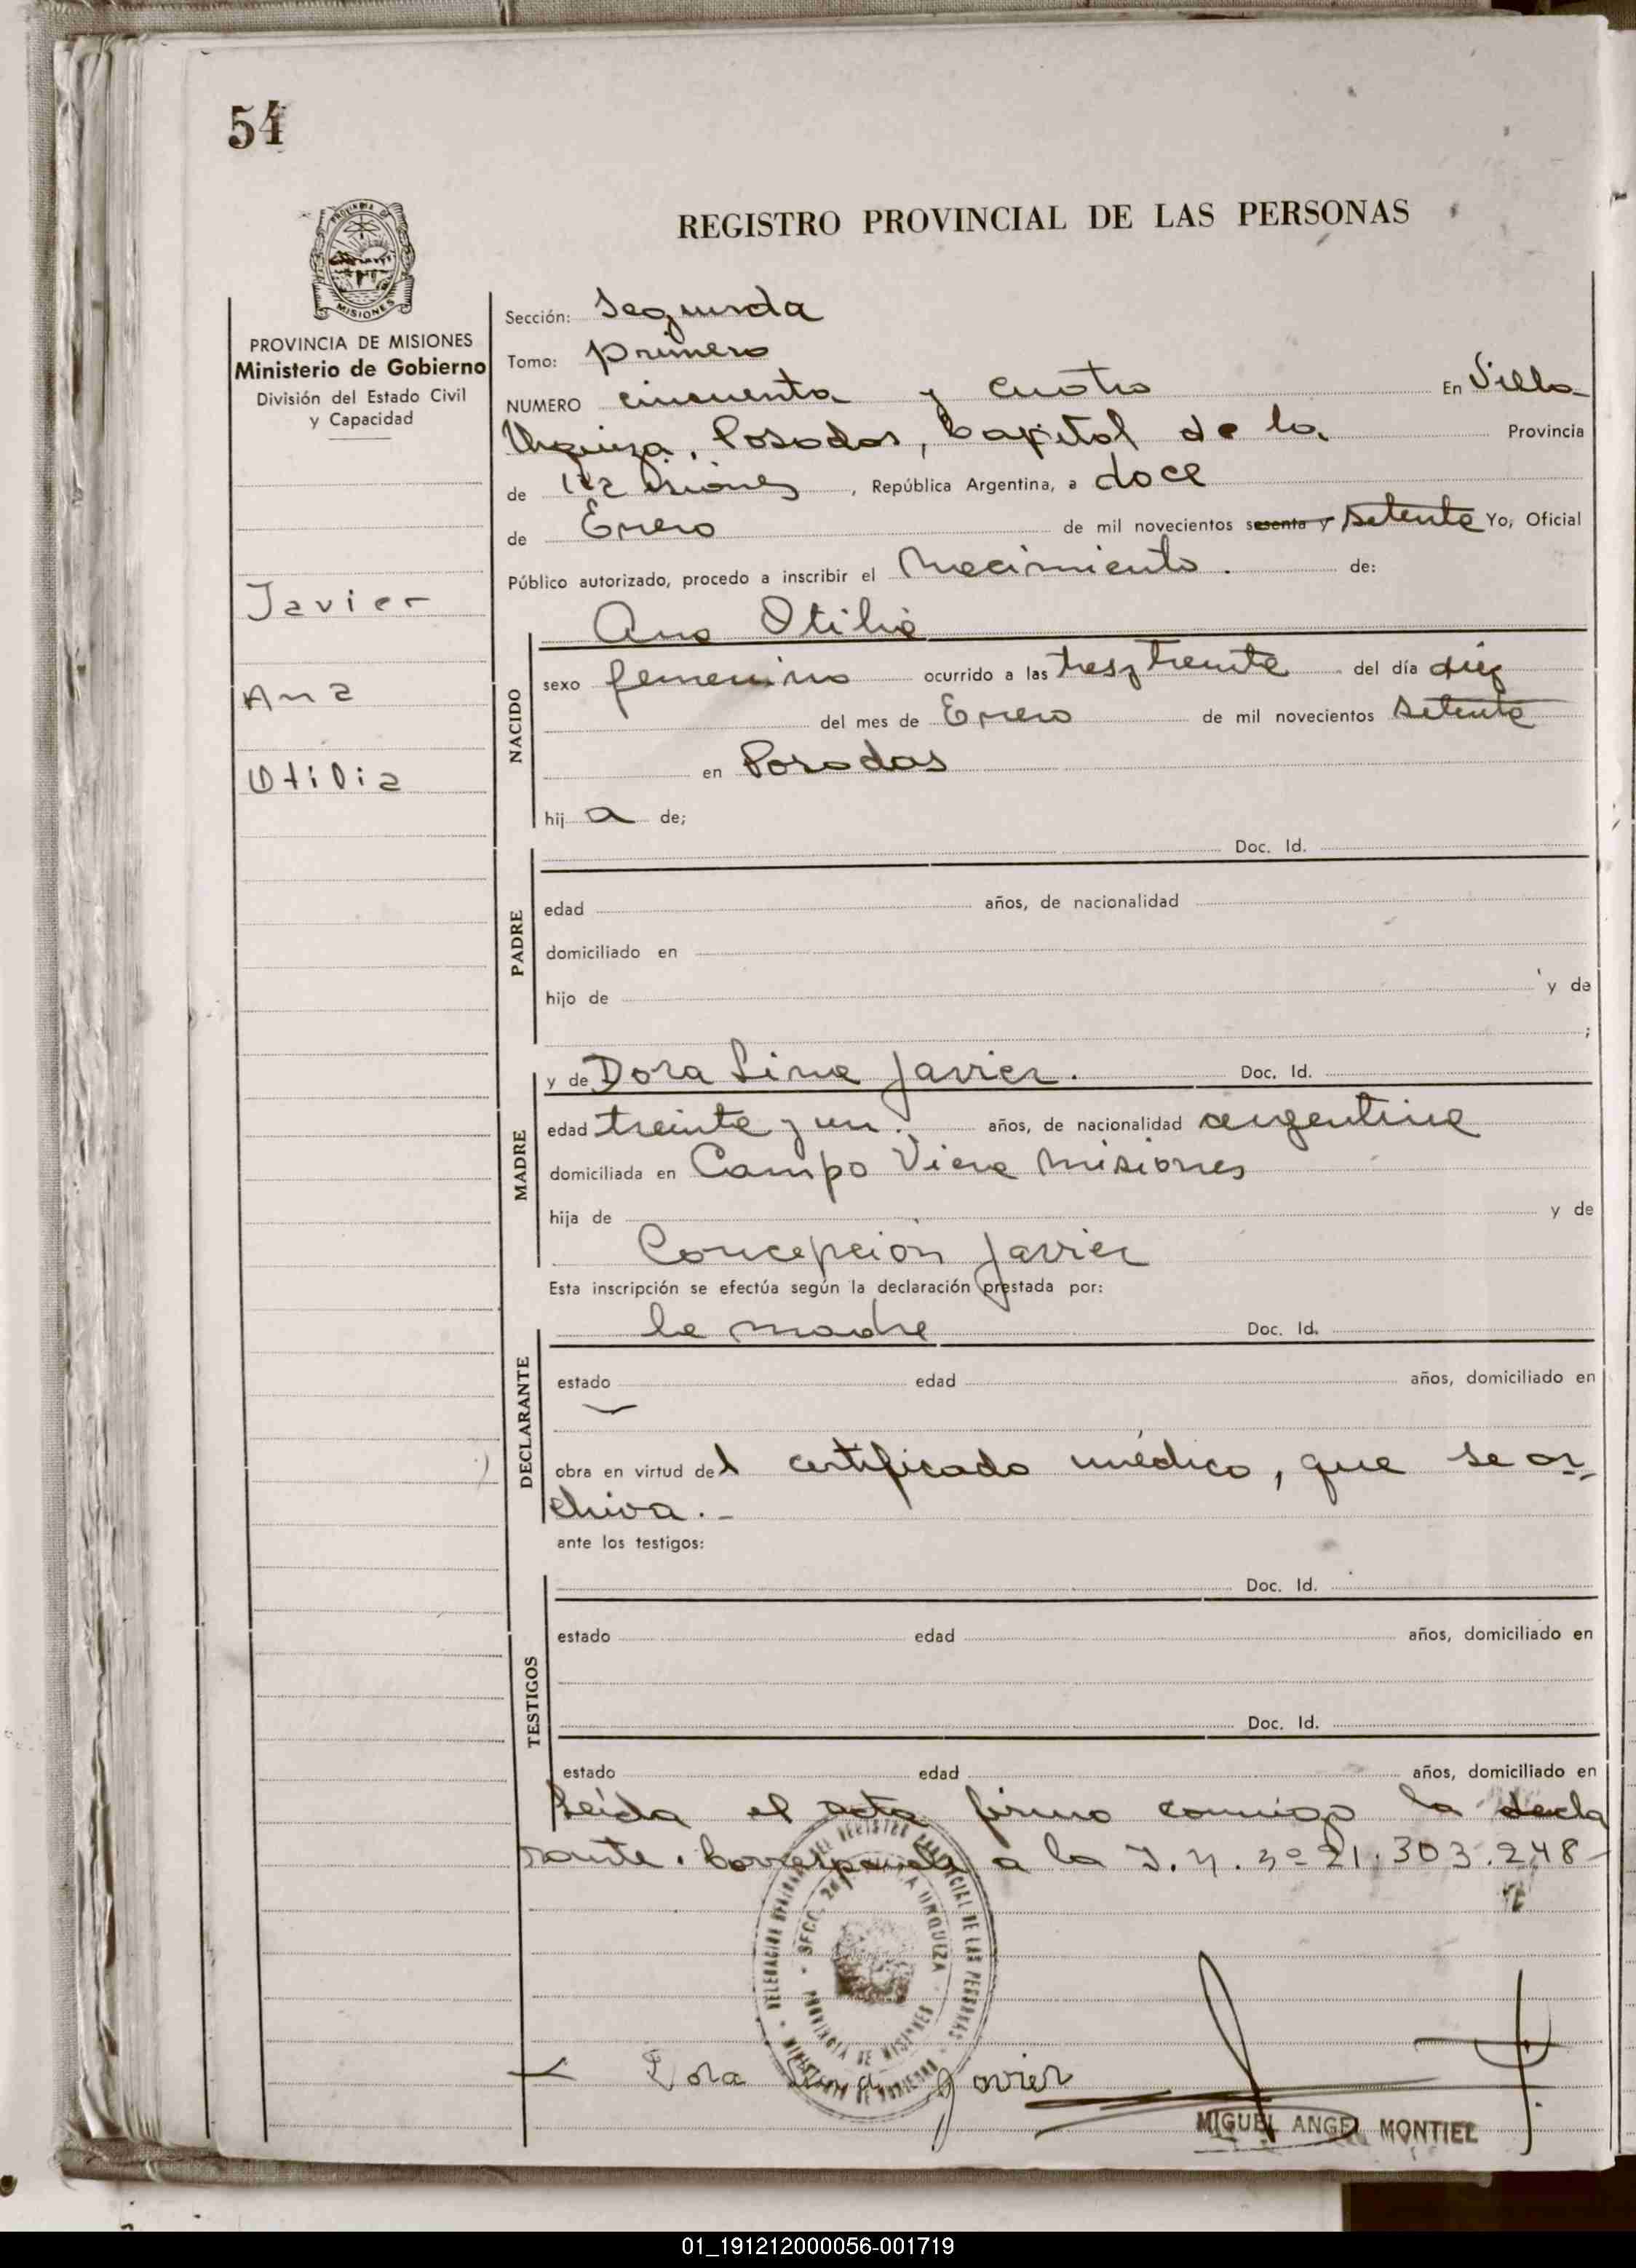 54
REGISTRO PROVINCIAL DE LAS PERSONAS
MISIONES
PROVINCIA DE MISIONES
Ministerio de Gobierno
División del Estado Civil
y Capacidad
Javier
Ana
Otilia
Sección: Segunda
Tomo: primero
NUMERO cincuenta y cuatro En Villa
Urquiza, Posadas, Capital de la Provincia
de Misiones, República Argentina, a doce
de Enero de mil novecientos sesenta y setenta Yo, Oficial
Público autorizado, procedo a inscribir el Nacimiento. de:
Ana Otilia
NACIDO
sexo femenino ocurrido a las tres y treinta del día diez
del mes de Enero de mil novecientos setenta
en Posadas
hij a de;
PADRE
Doc. Id.
edad años, de nacionalidad
domiciliado en
hijo de y de
;
MADRE
y de Dora Lina Javier. Doc. Id.
edad treinta y un. años, de nacionalidad argentina
domiciliada en Campo Viera Misiones
hija de y de
Concepción Javier
Esta inscripción se efectúa según la declaración prestada por:
DECLARANTE
la madre Doc. Id.
estado edad años, domiciliado en
obra en virtud del certificado médico, que se ar
chiva.-
ante los testigos:
TESTIGOS
Doc. Id.
estado edad años, domiciliado en
Doc. Id.
estado edad años, domiciliado en
Leída el acta firma conmigo la decla
rante. Corresponde a la I.N. nº 21.303.248-
DELEGACION REGISTRO PROVINCIAL DE LAS PERSONAS
SECC. 2a URQUIZA
PROVINCIA DE MISIONES
MINISTERIO DE GOBIERNO
Dora Lina Javier
MIGUEL ANGEL MONTIEL
01_191212000056-001719